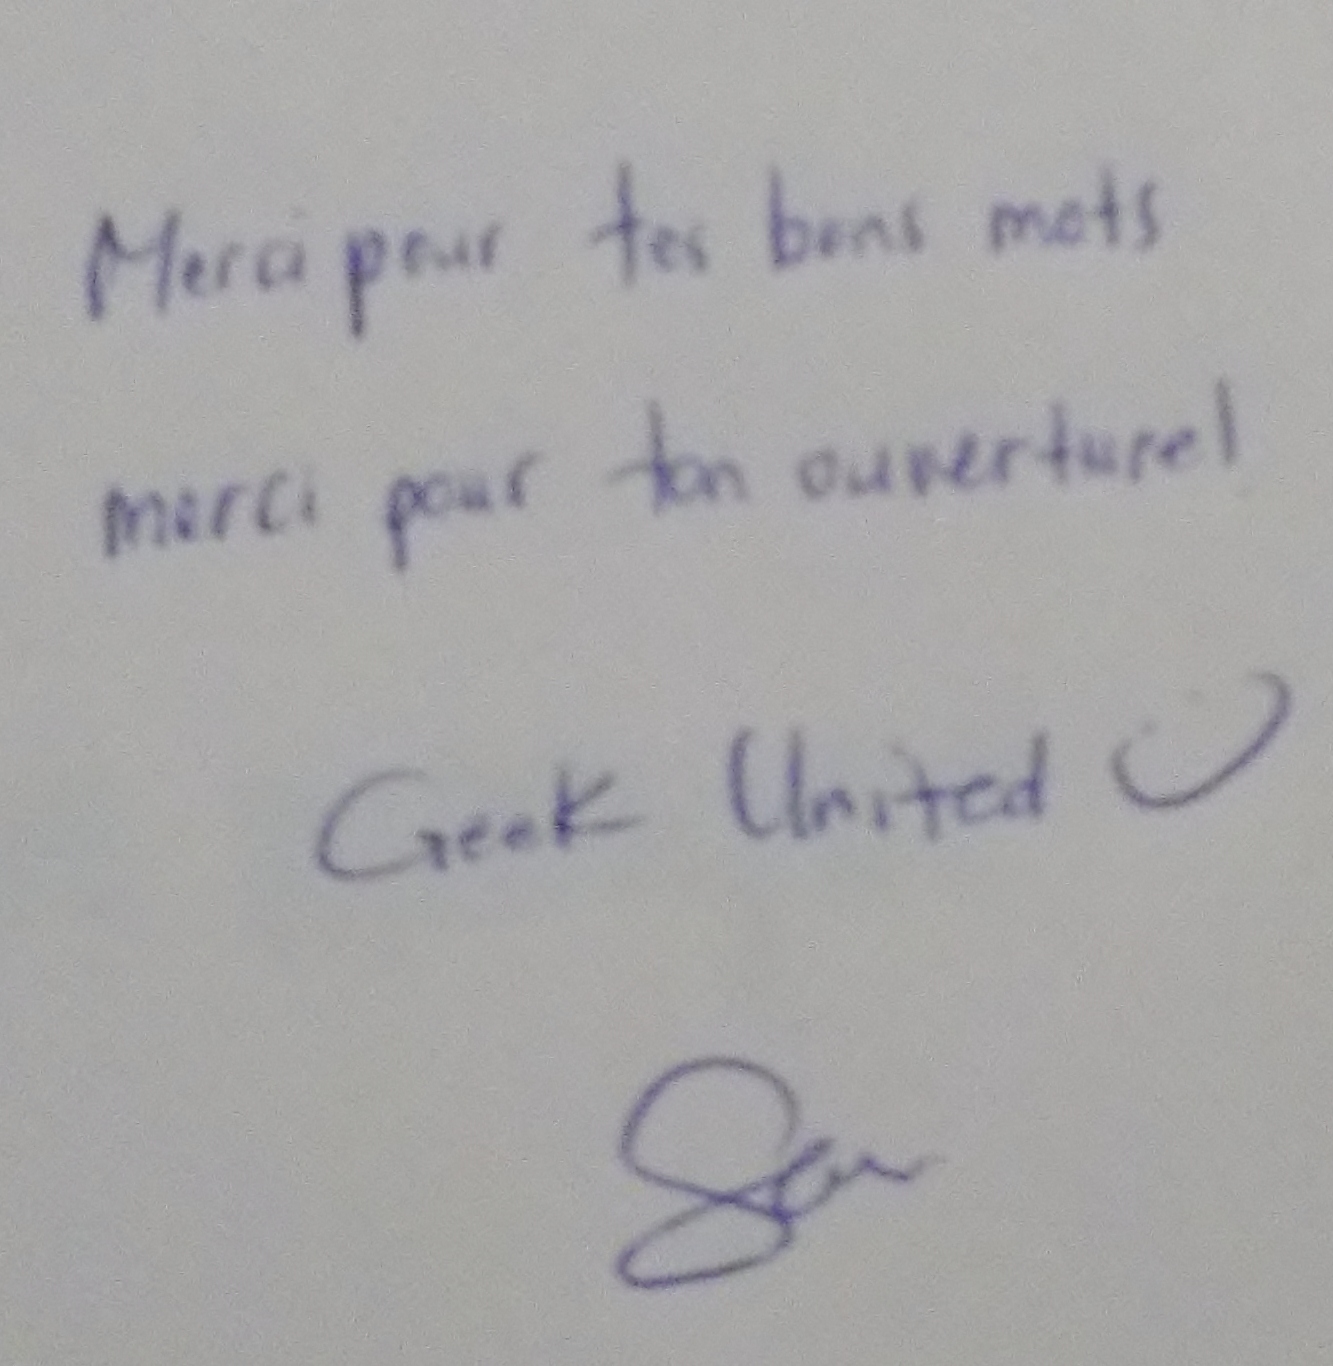 Merci pour tes bons mots
merci pour ton ouverture!
Geek United